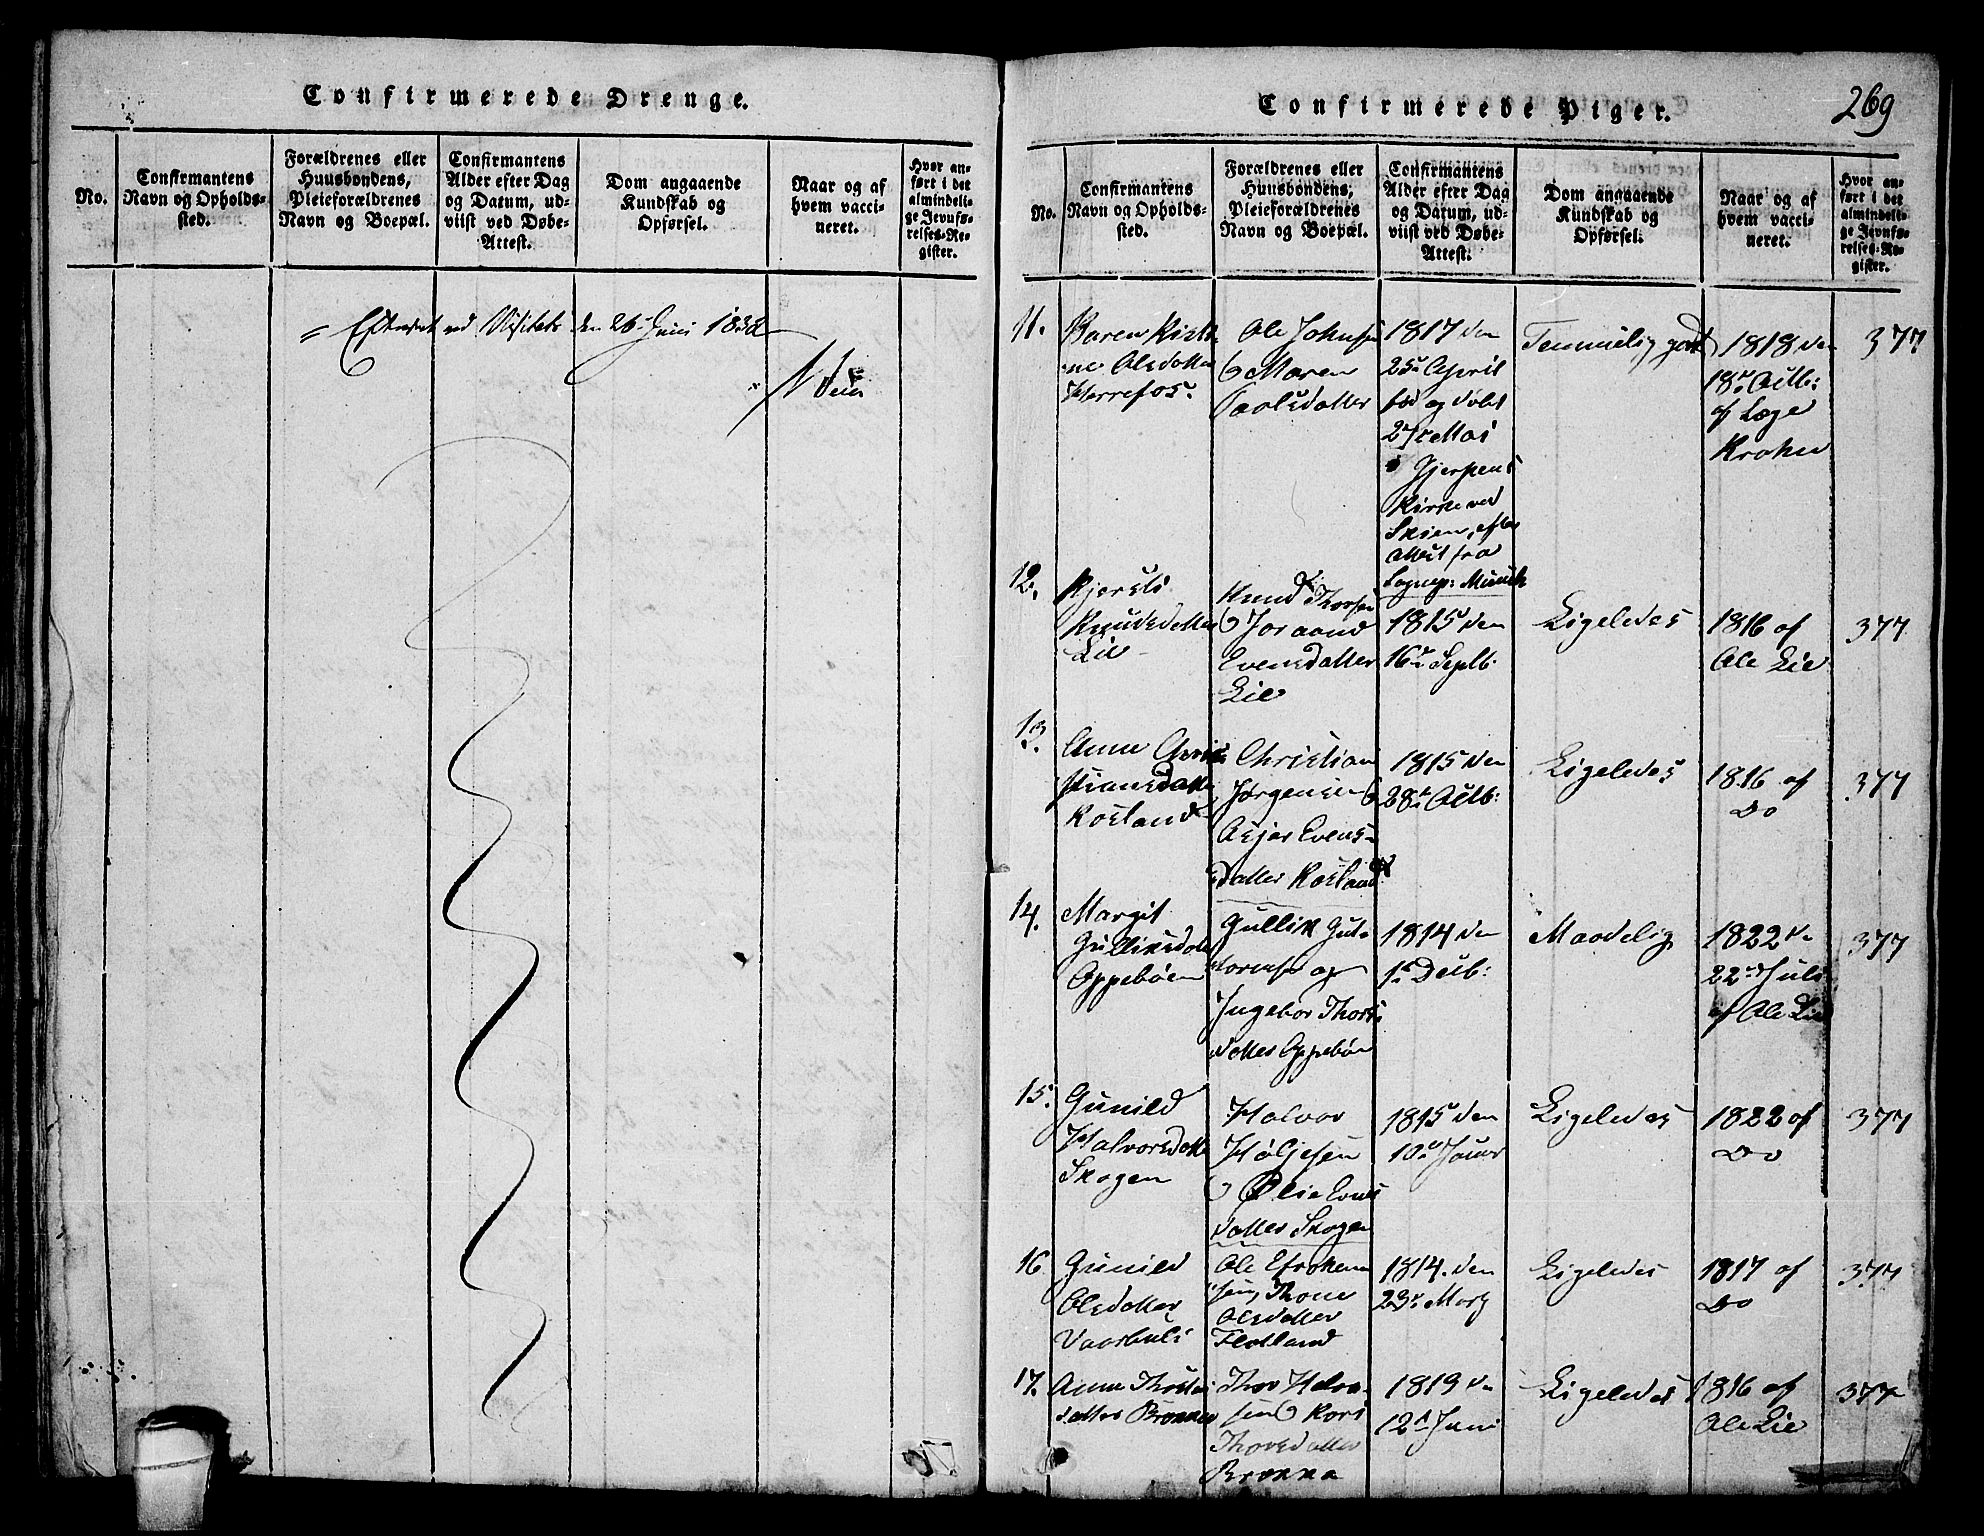 Confirmerede Drenge.
No.
Confirmantens
Navn og Opholds-
sted.
Forældrenes eller
Huusbondens,
Pleieforældrenes
Navn og Boepæl.
Confirmantens
Alder efter Dag
og Datum, ud-
viist ved Døbe-
Attest.
Dom angaaende
Kundskab og
Opførsel.
Naar og af
hvem vacci-
neret.
Hvor an-
ført i det
almindeli-
ge Jevnfø-
relses-Re-
gister.
ved Visitats den 26 Juni 1832
Confirmerede Piger.
269
No.
Confirmantens
Navn og Opholds-
sted.
Forældrenes eller
Huusbondens,
Pleieforældrenes
Navn og Boepæl.
Confirmantens
Alder efter Dag
og Datum, ud-
viist ved Døbe-
Attest.
Dom angaaende
Kundskab og
Opførsel.
Naar og af
hvem vacci-
neret.
Hvor an-
ført i det
almindeli-
ge Jevnfø-
relses-Re-
gister.
11.
Karen Kisti-
ne Olsdatter
Herrefos
Ole Johnsen
Maren
Paalsdatter
1817 den
25 April
fød og døbt
27 Mai
i Gjerpens
Kirke ved
Skien, efter
Attest fra
Sognep: Munch
Temmelig godt
1818 den
18 Octb:
af Læge
Krohn
377
12.
Kjersti
Knudsdatter
Lie
Knud Thorsen
Joraand
Evensdatter
Lie
1815 den
16 Septb.
Ligeledes
1816 af
Ole Lie
377
13.
Anne Chris-
tiansdatter
Rosland
Christian
Jørgensen
Asjer Evens-
datter Rosland
1815 den
28 Octb:
Ligeledes
1816 af
Do
377
14.
Margit
Gulliksdatter
Oppebøen
Gullik Gut-
tormsen og
Ingebor Thors-
datter Oppebøn
1814 den
1 Decb:
Maadelig
1822 d.
22 Juli
af Ole Lie
377
15.
Gunild
Halvorsdatter
Skogen
Halvor
Høljesen
Evens
datter Skogen
1815 den
10 Januar
Ligeledes
1822 af
Do
377
16
Gunild
Olsdatter
Ole
sen, Thone
Olsdatter
Flatland
1814. den
23 Marz
Ligeledes
1817 af
Do
377
17.
Anne Thors-
datter Brokka
Thor Halvor-
sen Kari
Thorsdatter
Brokka
1813 den
12 Juni
Ligeledes
1816 af
Ole Lie
377